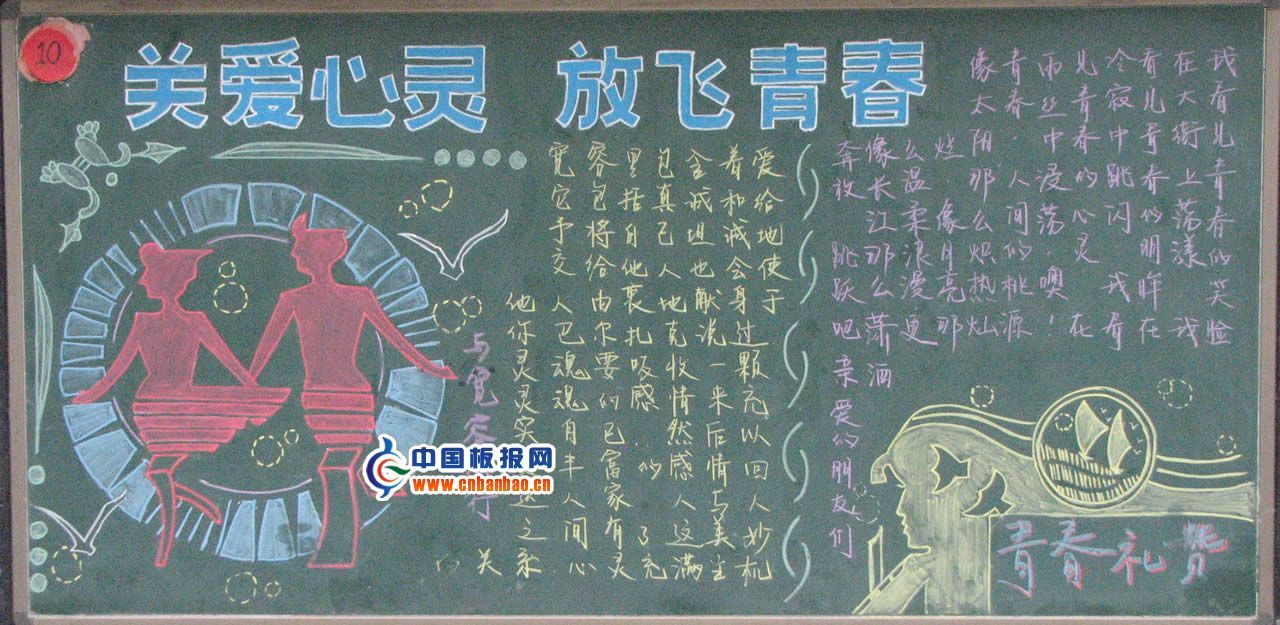 10
关爱心灵 放飞青春
宽容里包含着爱
它包括真诚和给
予将自己坦诚地
交给他人也会使
人由衷地献身于
他 巴尔扎克说过
灵魂要吸收一颗
灵魂的感情来充
实自己然后以
丰富的感情回
人家 人与人
之间有了这美妙
的关 心灵充满生机
与宽容 行
我看见青春的笑脸
在大街上荡漾 我
看见青春的明眸在
冷寂中跳闪 我看
见青春的心灵 在
雨丝中浸荡.噢!
青春.人间的桃源
像太阳那么炽热灿
烂 像月亮那
么温柔浪漫更
像长江那么潇洒
奔放 跳跃吧亲爱的朋友们
青春礼赞
中国板报网
www.cnbanbao.cn